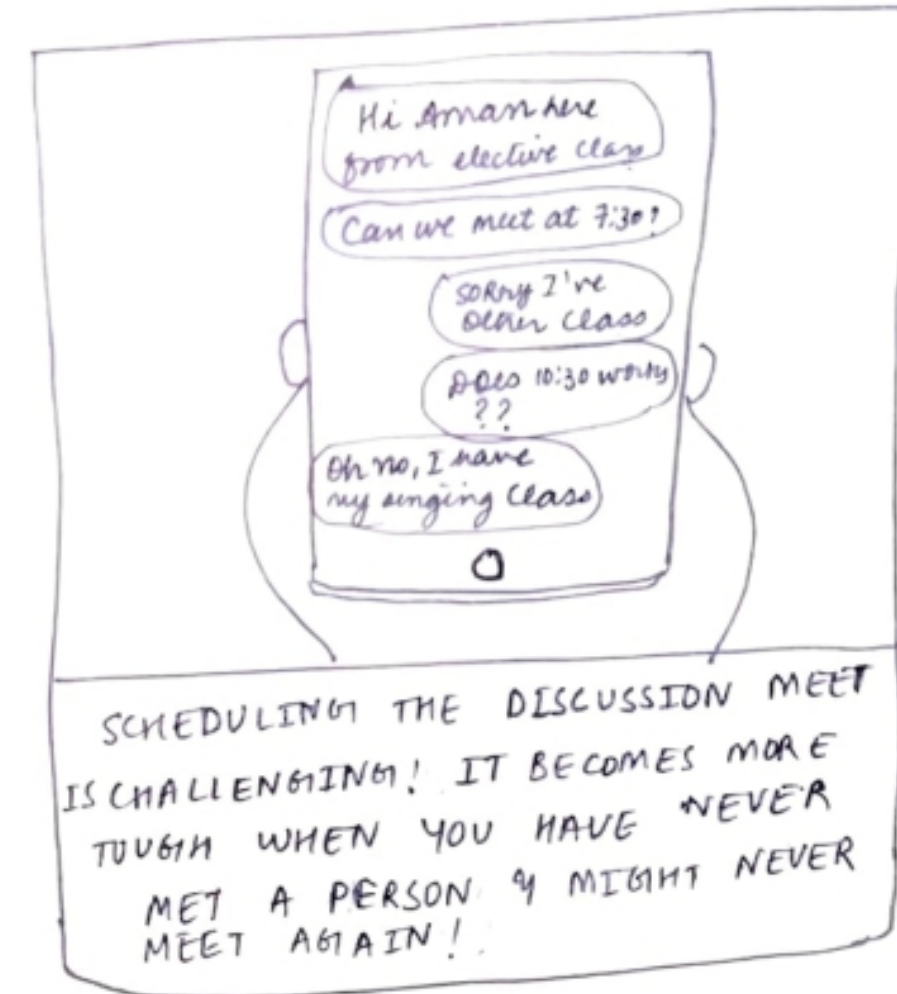 Hi Aman here
from elective class
Can we meet at 7:30?
SORRy I've
other class
DOes 10:30 works
??
Oh no, I have
my singing class
SCHEDULING THE DISCUSSION MEET
IS CHALLENGING! IT BECOMES MORE
TOUGH WHEN YOU HAVE NEVER
MET A PERSON & MIGHT NEVER
MEET AGAIN!